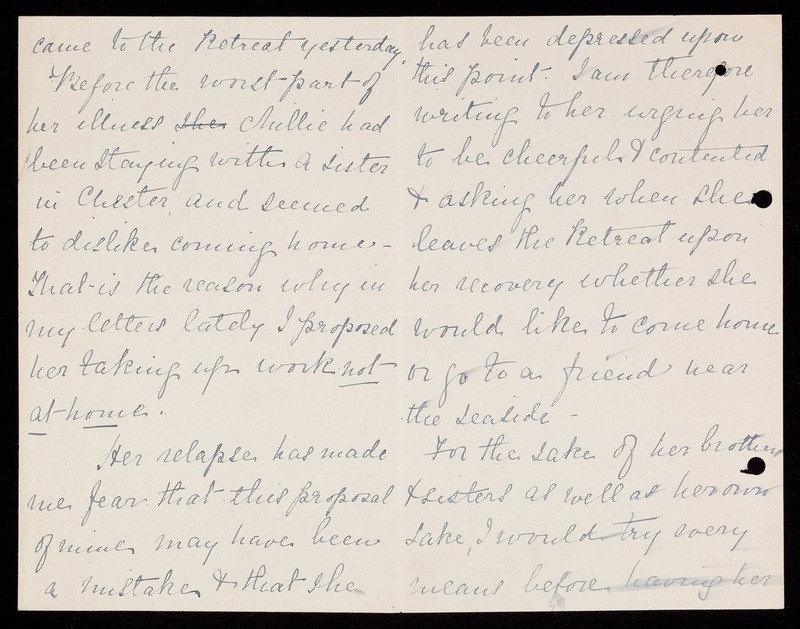 came to the Retreat yesterday.
Before the worst part of
her illness she Millie had
been staying with a sister
in Chester, and seemed
to dislike coming home -
That is the reason why in
my letters lately I proposed
her taking up work not
at home.
Her relapse has made
me fear that this proposal
of mine may have been
a mistake & that she
has been depressed upon
this point. I am therefore
writing to her urging her
to be cheerful & contented
& asking her when she
leaves the Retreat upon
her recovery whether she
would like to come home
or go to a friend near
the seaside -
For the sake of her brothers
& sisters as well as her own
sake, I would try every
means before having her